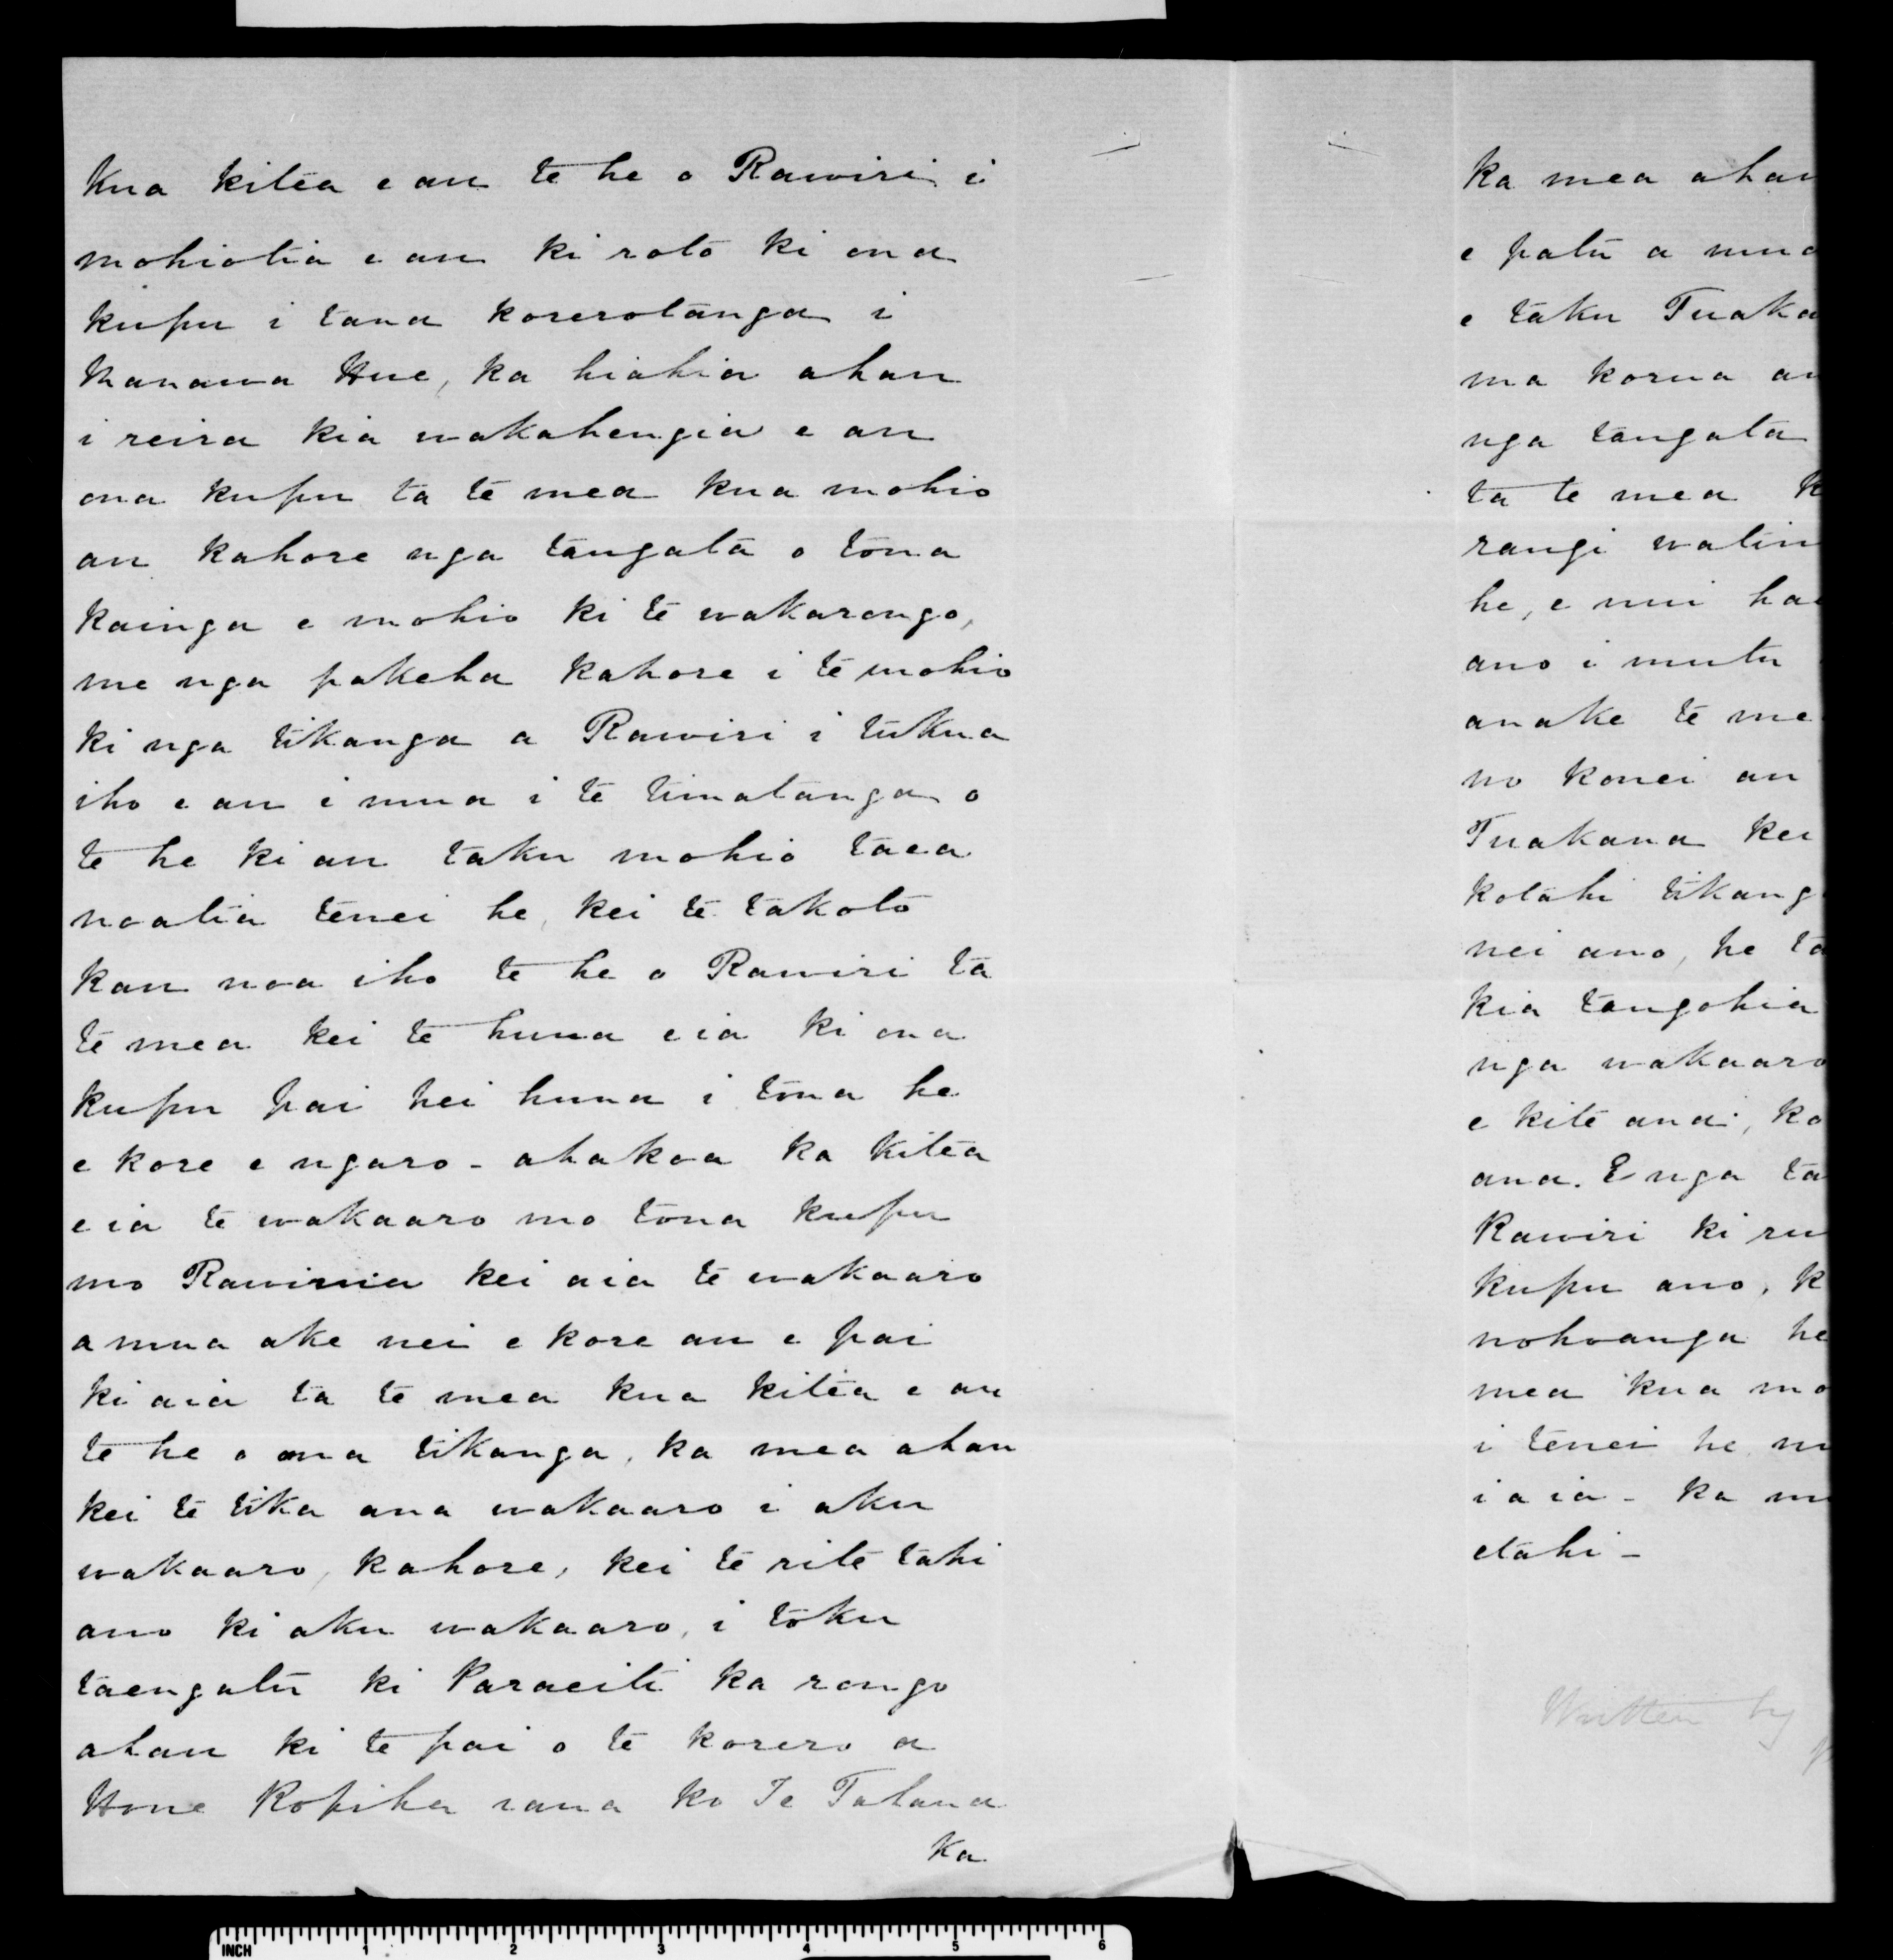 Kua kitea e au te he o Rawiri i
mohiotia e au ki roto ki ona
kupu i tana korerotanga i
Manawa Hue, ka hiahia ahau
i reira kia wakahengia e au
ona kupu ta te mea kua mohio
au kahore nga tangata o tona
kainga e mohio ki te wakarongo,
me nga pakeha kahore i te mohio
ki nga tikanga a Rawiri i tukua
iho e au i mua i te timatanga o
te he ki au taku mohio taea
noatia tenei he, kei te takoto
kau noa iho te he o Rawiri ta
te mea kei te huna e ia ki ona
kupu pai hei huna i tona he
e kore e ngaro - ahakoa ka kitea
e ia te wakaaro mo tona kupu
mo Rawinia kei aia te wakaaro
a mua ake nei e kore au e pai
ki aia ta te mea kua kitea e au
te he o ona tikanga, ka mea ahau
kei te tika ana wakaaro i aku
wakaaro, kahore, kei te rite tahi
ano ki aku wakaaro, i toku
taengatu ki Paraeiti ka rongo
ahau ki te pai o te korero a
Hone Ropiha raua ko Te Tahana
Ka
Ka mea ahau
e patu a mua
e taku Tuaka
ma korua au
nga tangata
ta te mea k
rangi watiu
he, e nui ha
ano i mutu
anake te me
no konei au
Tuakana kei
kotahi tikang
nei ano, he ta
kia tangohia
nga wakaaro
e kite ana, ko
ana. E nga ta
Rawiri ki ru
kupu ano, k
nohoanga he
mea kua mo
i tenei he
i a ia - ka m
etahi -
Written by
INCH 1 2 3 4 5 6